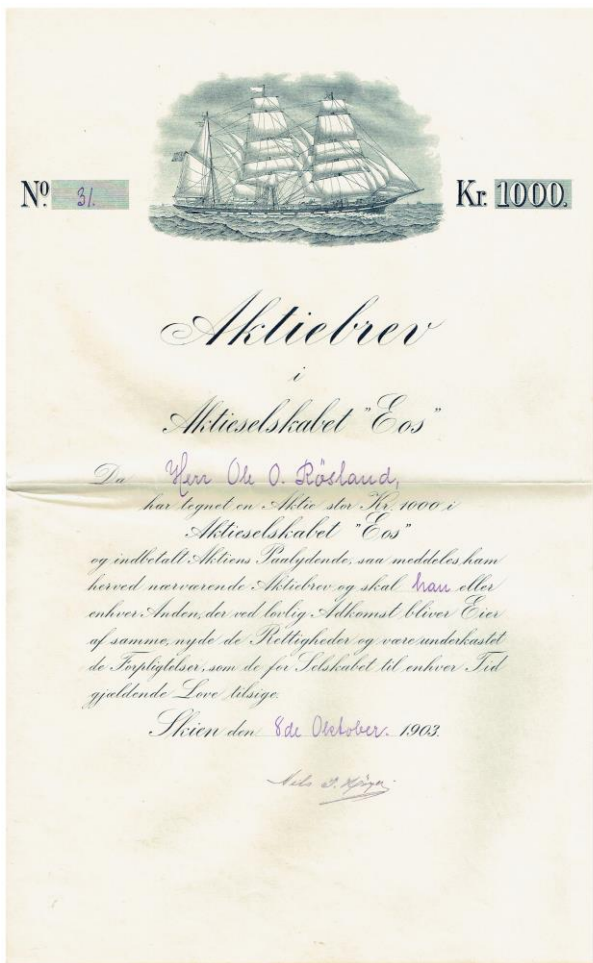 No. 31.
Kr. 1000.
Aktiebrev
i
Aktieselskabet "Eos"
Da Herr Ole O. Rösland,
har tegnet en Aktie stor Kr. 1000 i
Aktieselskabet "Eos"
og indbetalt Aktiens Paalydende, saa meddeles ham
herved nærværende Aktiebrev, og skal han eller
enhver Anden, der ved lovlig Adkomst bliver Eier
af samme, nyde de Rettigheder og være underkastet
de Forpligtelser, som de for Selskabet til enhver Tid
gjældende Love tilsige.
Skien den 8de Oktober. 1903.